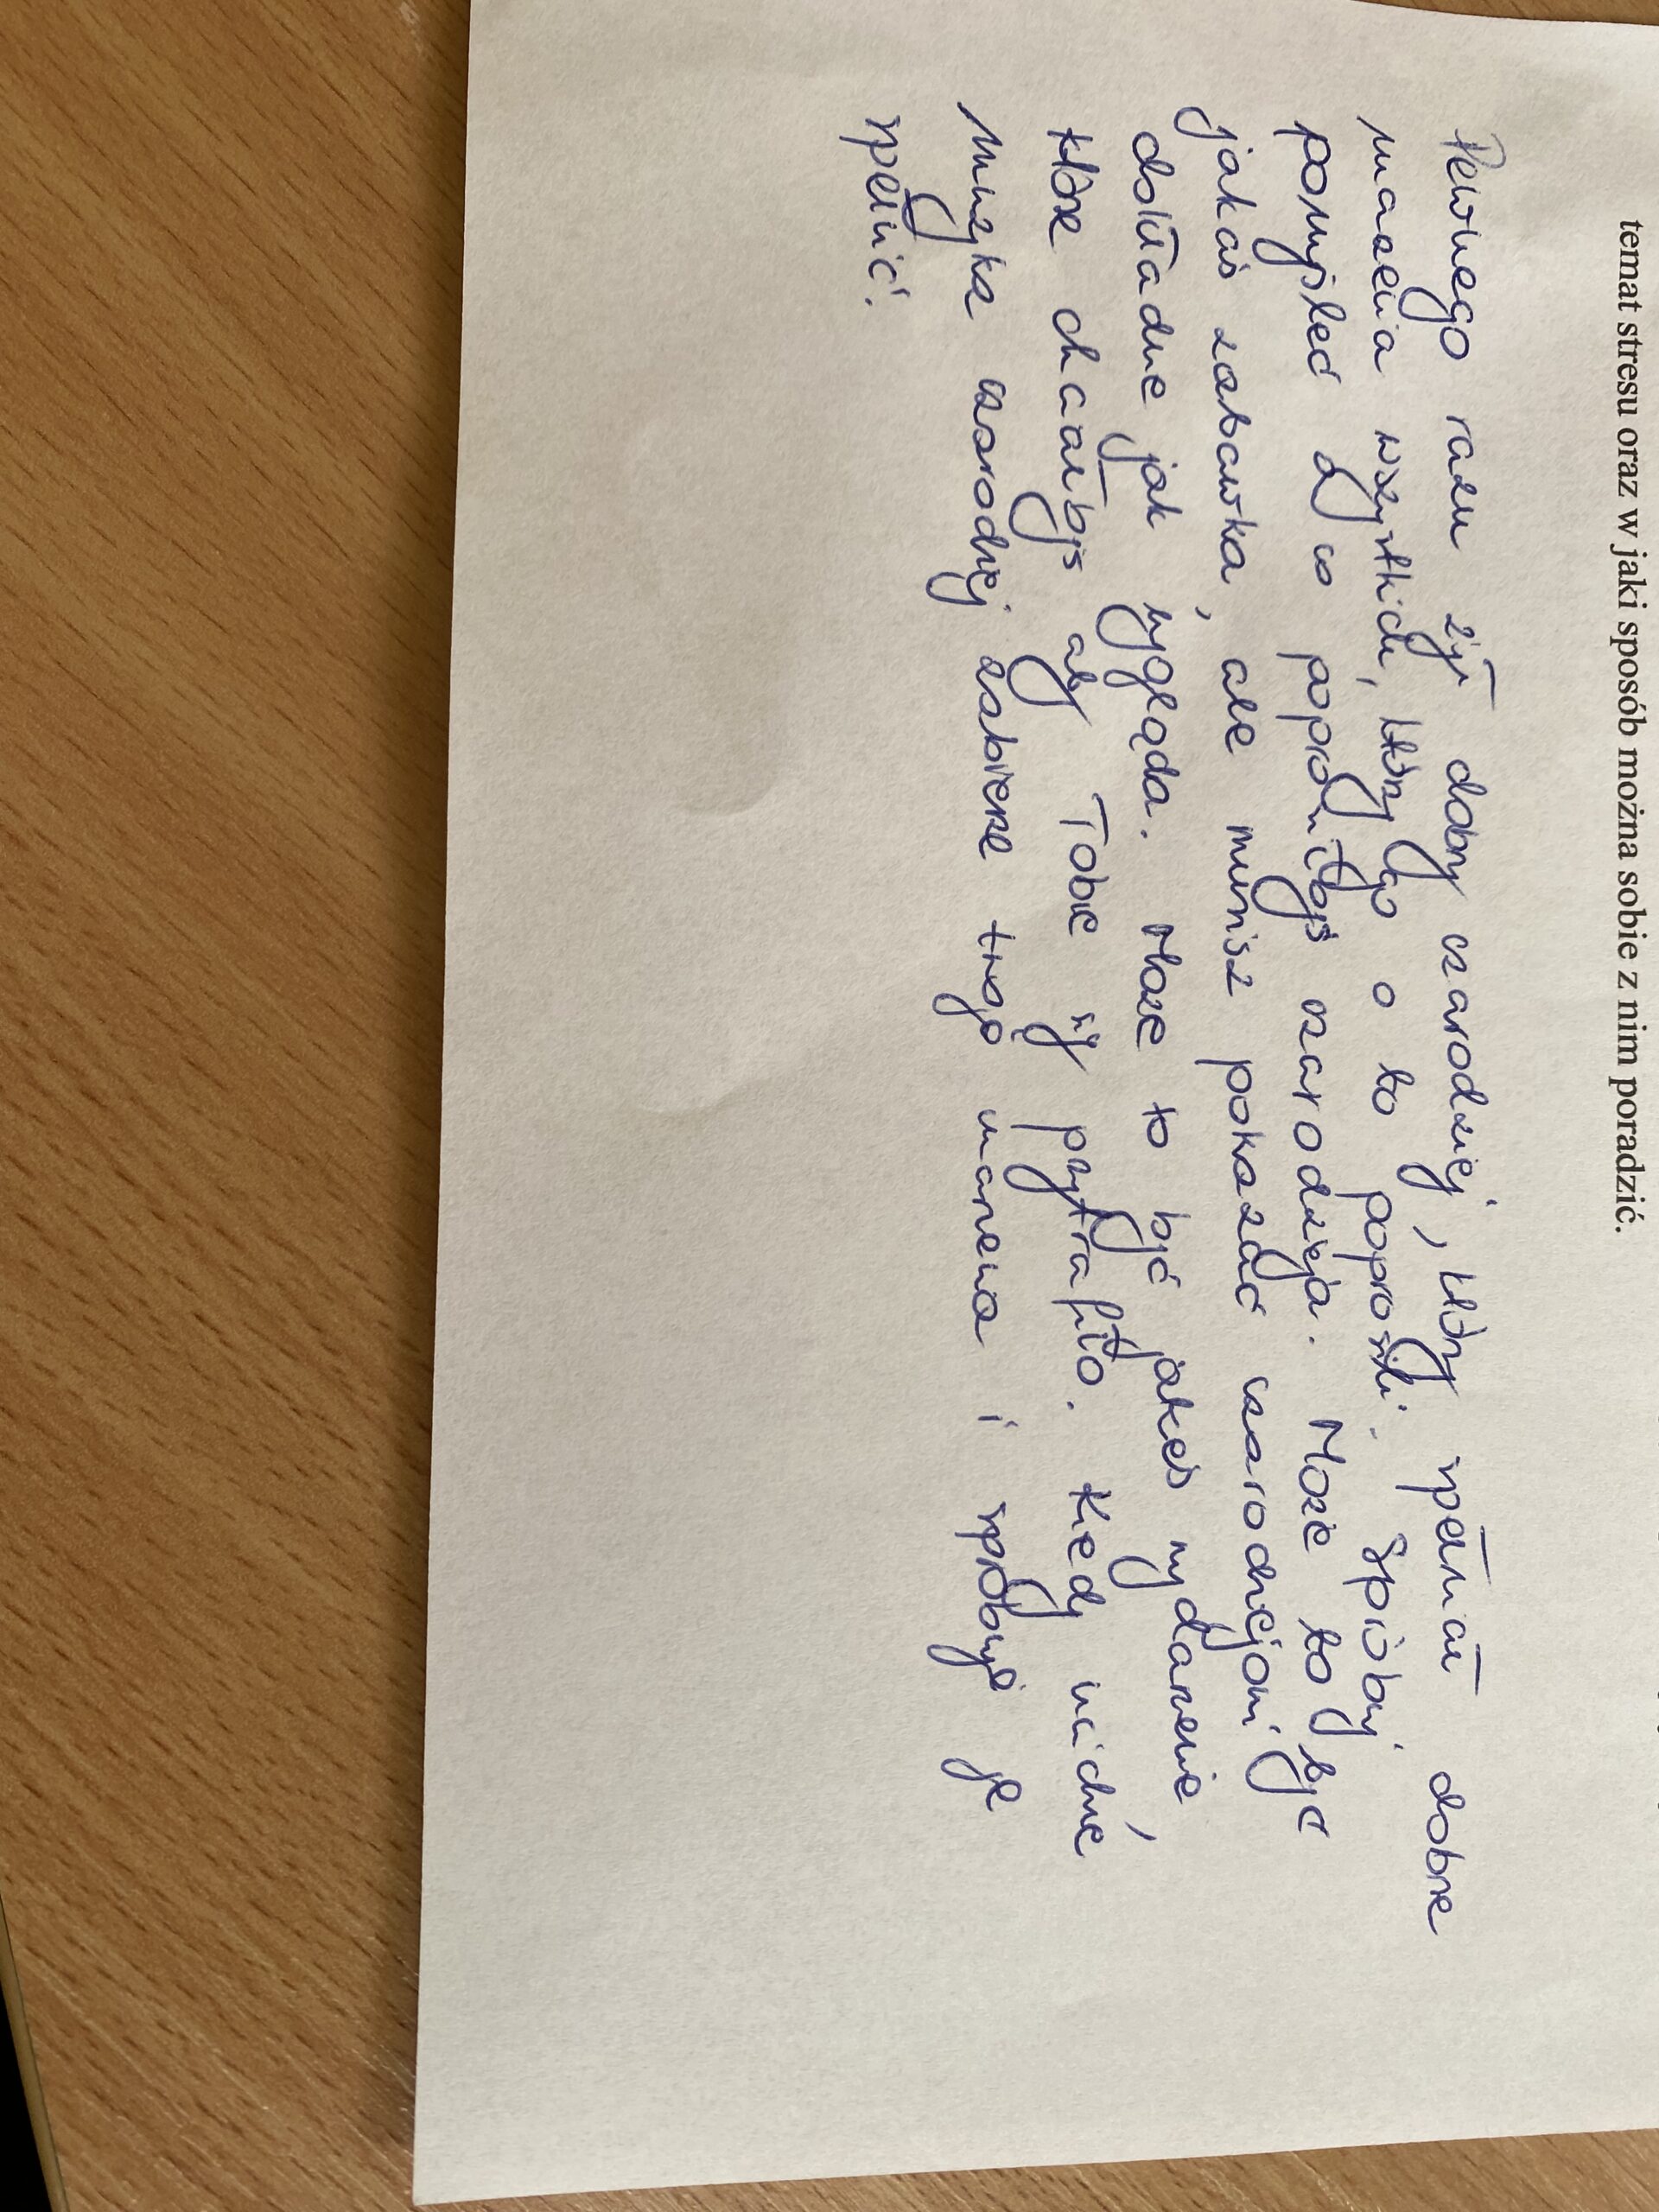 temat stresu oraz w jaki sposób można sobie z nim poradzić.
Pewnego razu żył dobry czarodziej, który spełniał dobre
marzenia wszystkich, którzy go o to poprosili. Spróbuj
pomyśleć o co poprosiłbyś czarodzieja. Może to być
jakaś zabawka, ale musisz pokazać czarodziejowi
dokładnie jak wygląda. Może to być jakieś wydarzenie,
które chciałbyś aby Tobie się przytrafiło. Kiedy ucichnie
muzyka czarodziej zabierze twoje marzenia i spróbuje je
spełnić.